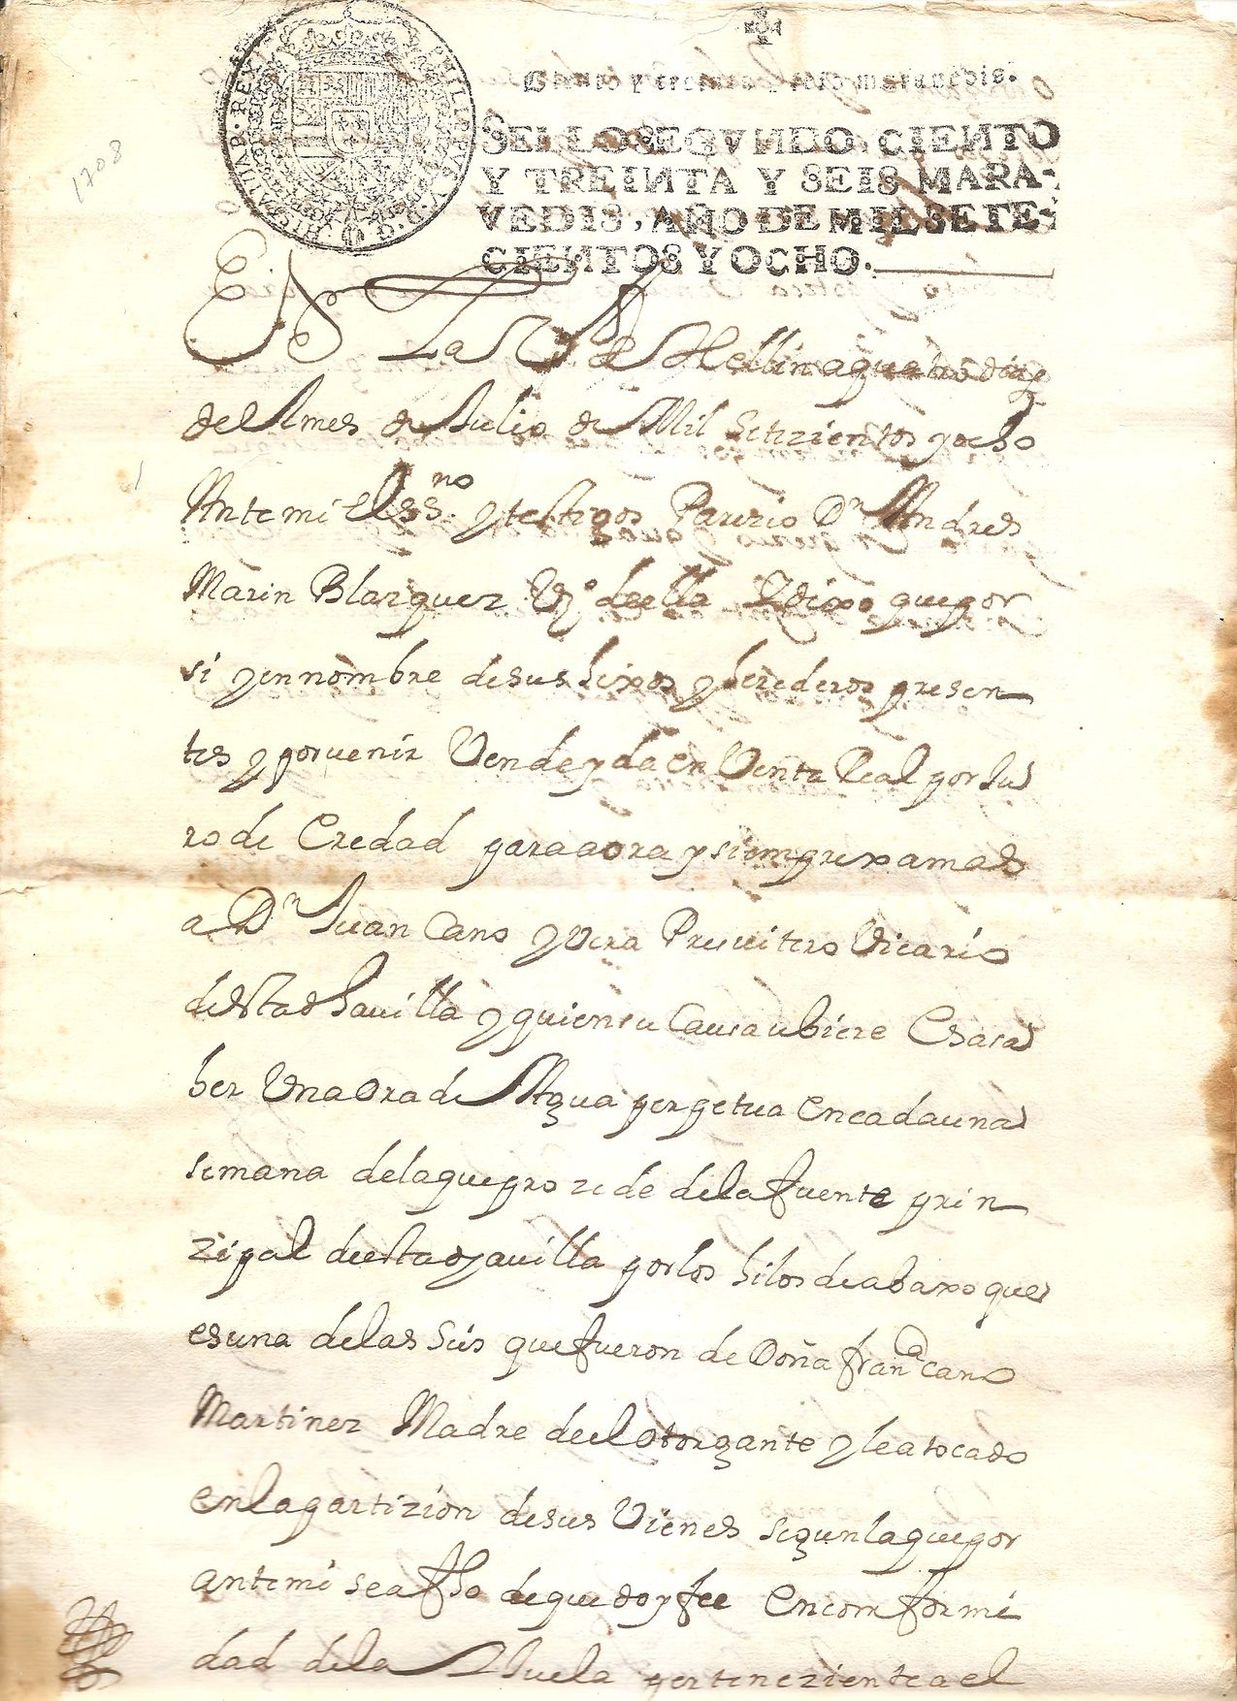 1708
PHILIPPVS V D G
HISPANIAR REX
Ciento y treinta y seis maravedis.
SELLO SEGVNDO, CIENTO
Y TREINTA Y SEIS MARA-
VEDIS, AÑO DE MIL SETE-
CIENTOS Y OCHO.
En La Vª de Hellin a quatro dias
del mes de Julio de Mil Setezientos y ocho
Ante mi el Essno y testigos Parezio Dn Andres
Marin Blazquez Vº de ella Y dixo que por
si y en nombre de sus hixos y herederos presen
tes y por venir Vende y da en Venta Real por Ju
ro de Eredad para aora y siempre xamas
a Dn Juan Cano y Vera Presuitero Vicario
desta dha uilla y quien su Causa ubiere Es a sa
ber Una Ora de Agua perpetua en cada una
semana de la que prozede de la fuente prin
zipal de esta dha uilla por los hilos de abaxo que
es una de las Seis que fueron de Doña Franca Cano
Martinez Madre de el otorgante y le a tocado
en la partizion de sus Vienes segun la que por
ante mi se a fho de que doy fee En comformi
dad de la Ijuela perteneziente a el